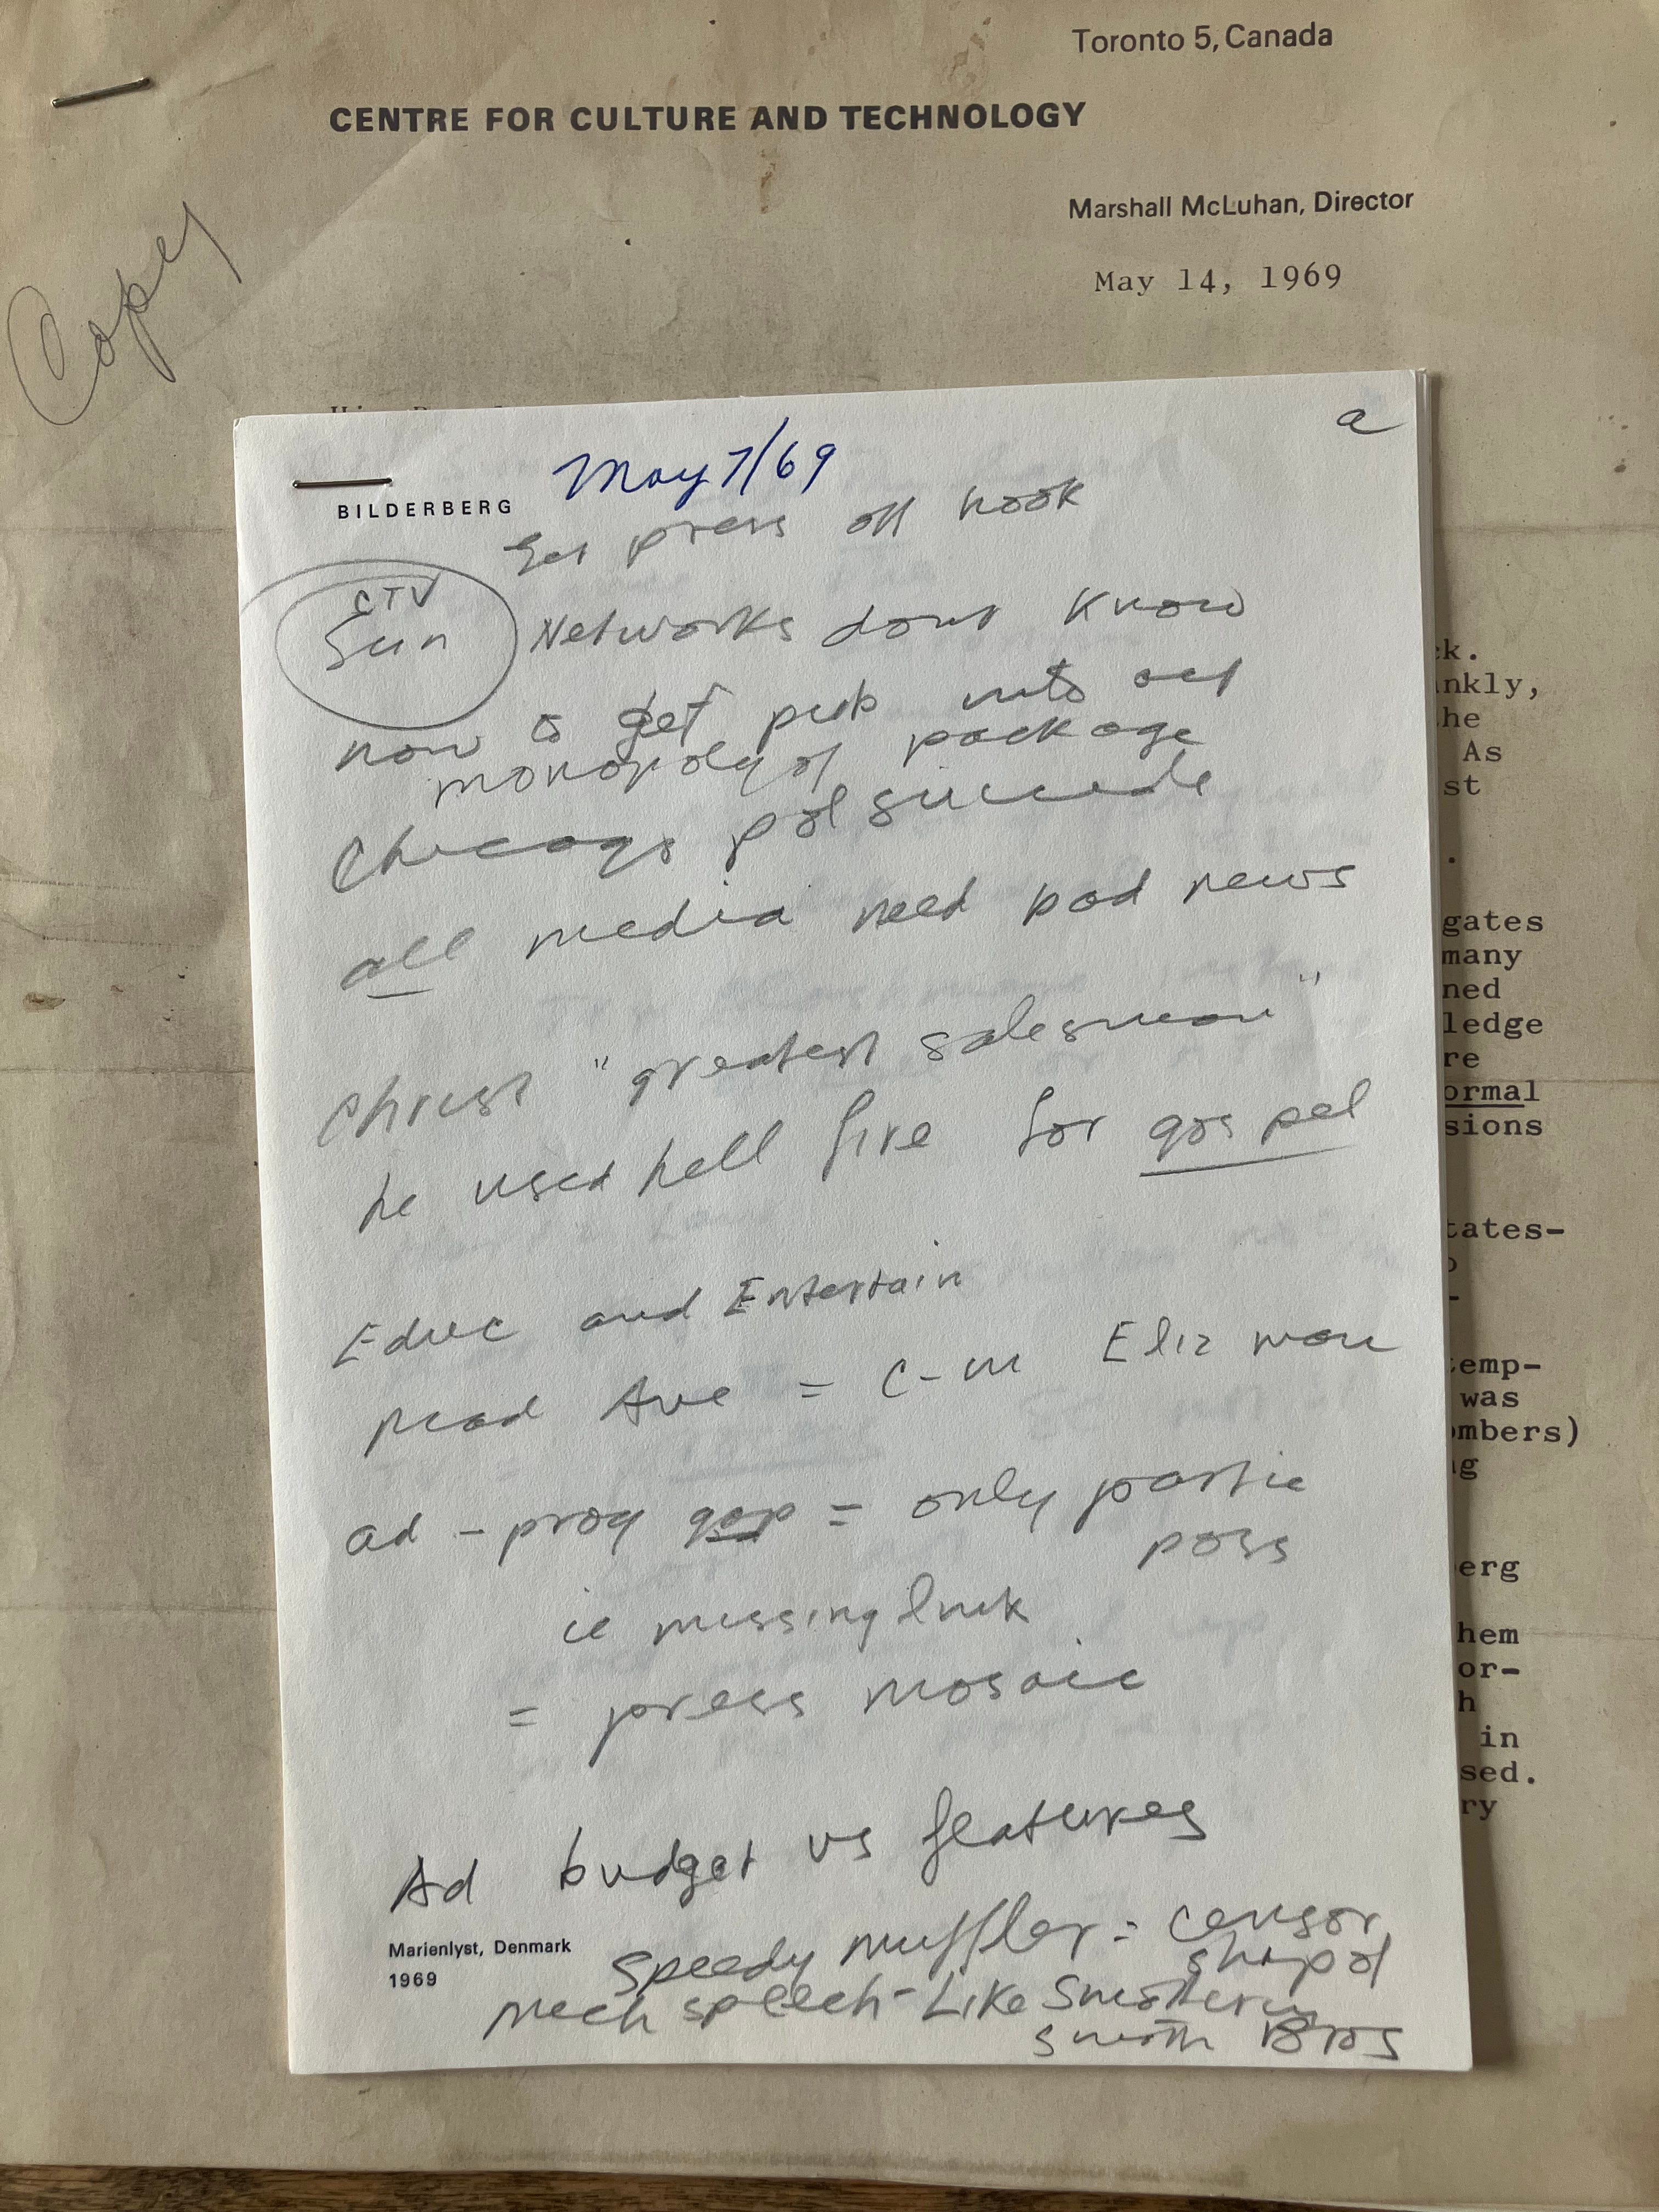 Toronto 5, Canada
CENTRE FOR CULTURE AND TECHNOLOGY
Marshall McLuhan, Director
May 14, 1969
Copy
a
May 7/69
BILDERBERG
Get press off hook
CTV
Sun
Networks dont know
how to get pub into act
monopoly of package
Chicago pol suicide
all media need bad news
Christ "greatest salesman"
he used hell fire for gospel
Educ and Entertain
Mad Ave = C-M Eliz
ad - prog gap = only partic
poss
ie missing link
= press mosaic
Ad budget vs features
Marienlyst, Denmark
1969
Speedy muffler = censor
ship of
mech speech - Like Smothering
Smoth Bros
ck.
nkly,
he
As
st
gates
many
ned
ledge
re
ormal
sions
tates-
temp-
was
mbers)
g
erg
hem
or-
h
in
sed.
ry